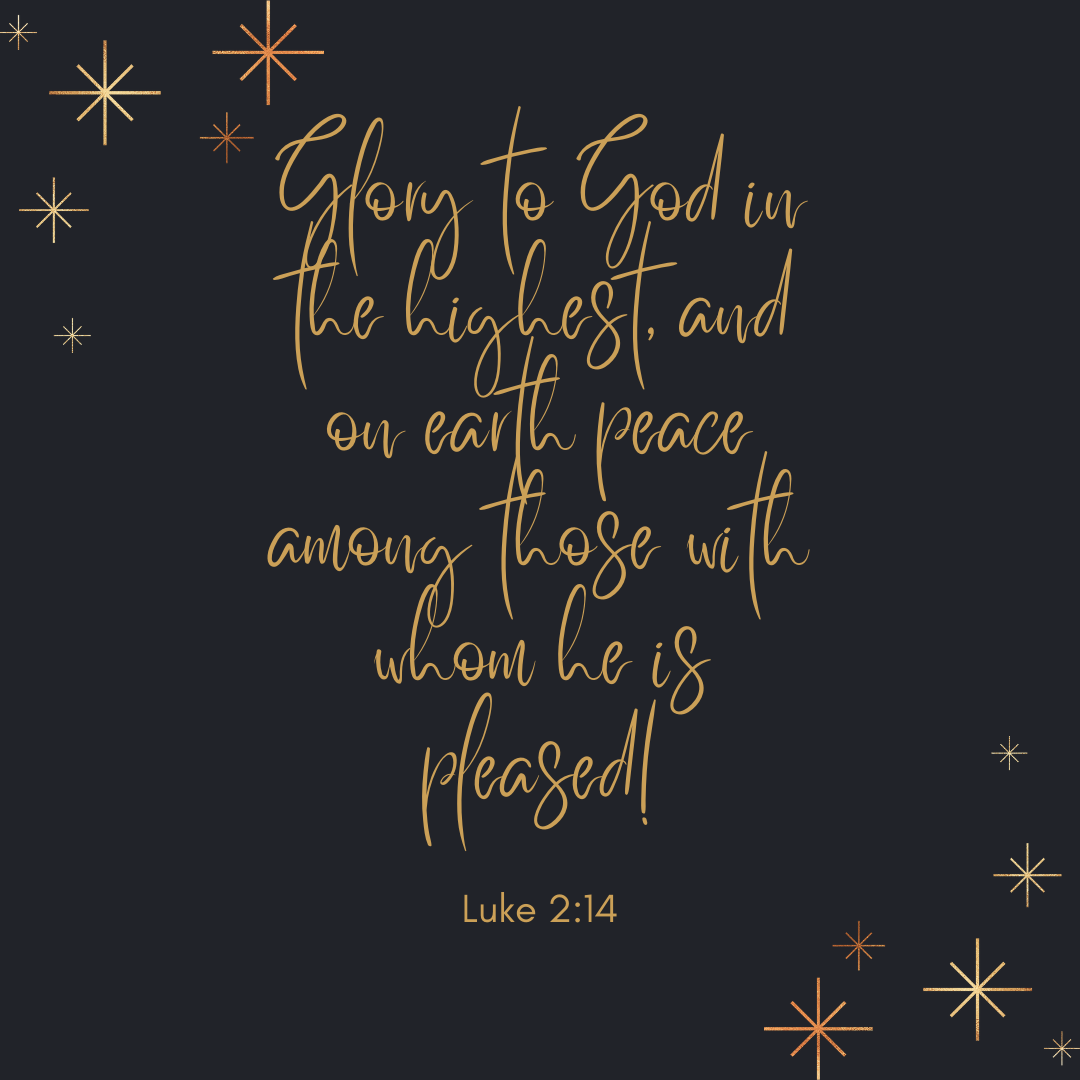 Glory to God in
the highest, and
on earth peace
among those with
whom he is
pleased!
Luke 2:14